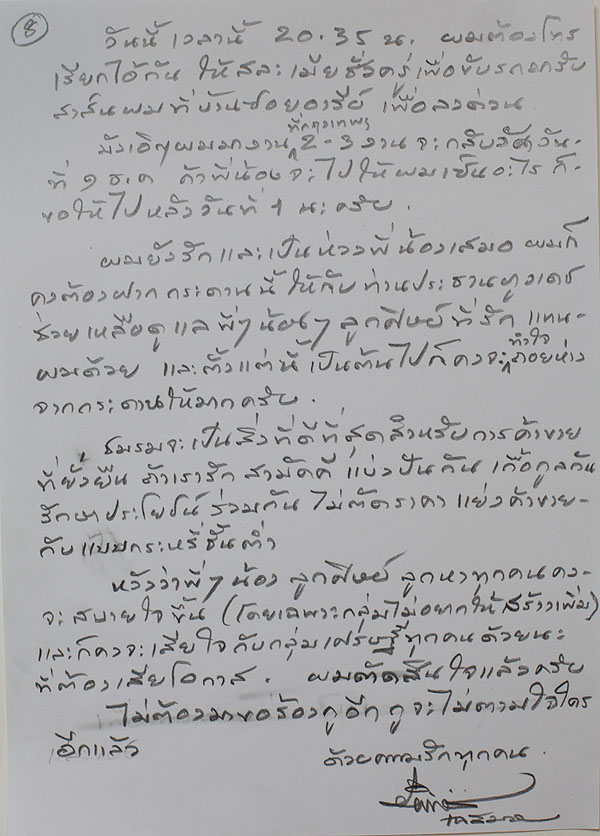 8
วันนี้ เวลานี้ 20.35 น. ผมต้องโทร
เรียกไอ้กัน ให้สละเมียชั่วครู่เพื่อขับรถกลับ
มาส้นผมที่บ้านซอยอารีย์ เพื่อลงด่วน
บังเอิญผมมางานที่กรุงเทพฯ 2-3 งาน จะกลับวัน
ที่ 1 ธ.ค ถ้าพี่น้องจะไปให้ผมเซ็นอะไร ก็
ขอให้ไปหลังวันที่ 1 นะครับ.
ผมยังรักและเป็นห่วงพี่น้องเสมอ ผมก็
คงต้องฝากกระดานนี้ ให้กับท่านประธานภูวเดช
ช่วยเหลือดูแลพี่ๆน้องๆ ลูกศิษย์ที่รัก แทน-
ผมด้วย และตั้งแต่นี้เป็นต้นไปก็คงจะทำใจถอยห่าง
จากกระดานให้มากครับ.
ชมรมจะเป็นสิ่งที่ดีที่สุดสำหรับการค้าขาย
ที่ยั่งยืน ถ้าเรารัก สามัคคี แบ่งปันกัน เกื้อกูลกัน
รักษาประโยชน์ร่วมกัน ไม่ตัดราคา แย่งค้าขาย-
กันแบบกะหรี่ชั้นต่ำ
หวังว่าพี่ๆน้อง ลูกศิษย์ ลูกหาทุกคนคง-
จะสบายใจขึ้น (โดยเฉพาะกลุ่มไม่อยากให้สร้างเพิ่ม)
และก็คงจะเสียใจกับกลุ่มเศรษฐีทุกคนด้วยนะ
ที่ต้องเสียโอกาส. ผมตัดสินใจแล้วครับ
ไม่ต้องมาขอร้องกูอีก กูจะไม่ตามใจใคร
อีกแล้ว
ด้วยความรักทุกคน.